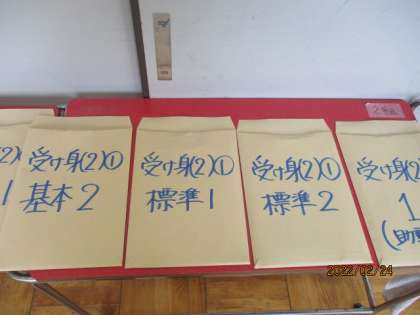 受け身(2)①
基本2
受け身(2)①
標準1
受け身(2)①
標準2
受け身(2)①
1
(助動
2022/02/24